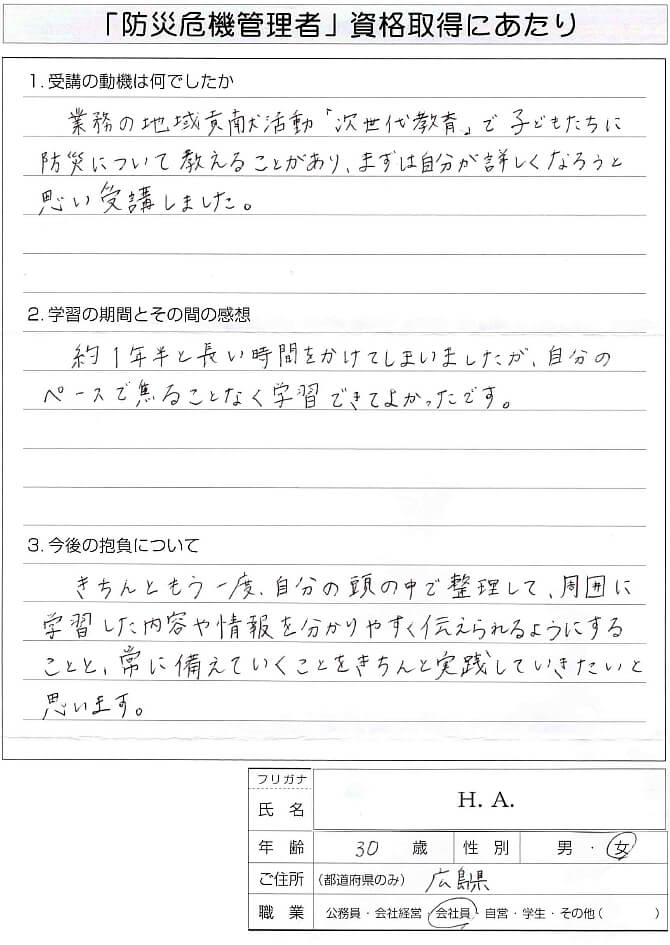 「防災危機管理者」資格取得にあたり
1. 受講の動機は何でしたか
業務の地域貢献活動「次世代教育」で子どもたちに
防災について教えることがあり、まずは自分が詳しくなろうと
思い受講しました。
2. 学習の期間とその間の感想
約1年半と長い時間をかけてしまいましたが、自分の
ペースで焦ることなく学習できてよかったです。
3. 今後の抱負について
きちんともう一度、自分の頭の中で整理して、周囲に
学習した内容や情報を分かりやすく伝えられるようにする
ことと、常に備えていくことをきちんと実践していきたいと
思います。
フリガナ
氏名 H. A.
年齢 30 歳 性別 男・女
ご住所 (都道府県のみ) 広島県
職業 公務員・会社経営・会社員・自営・学生・その他( )